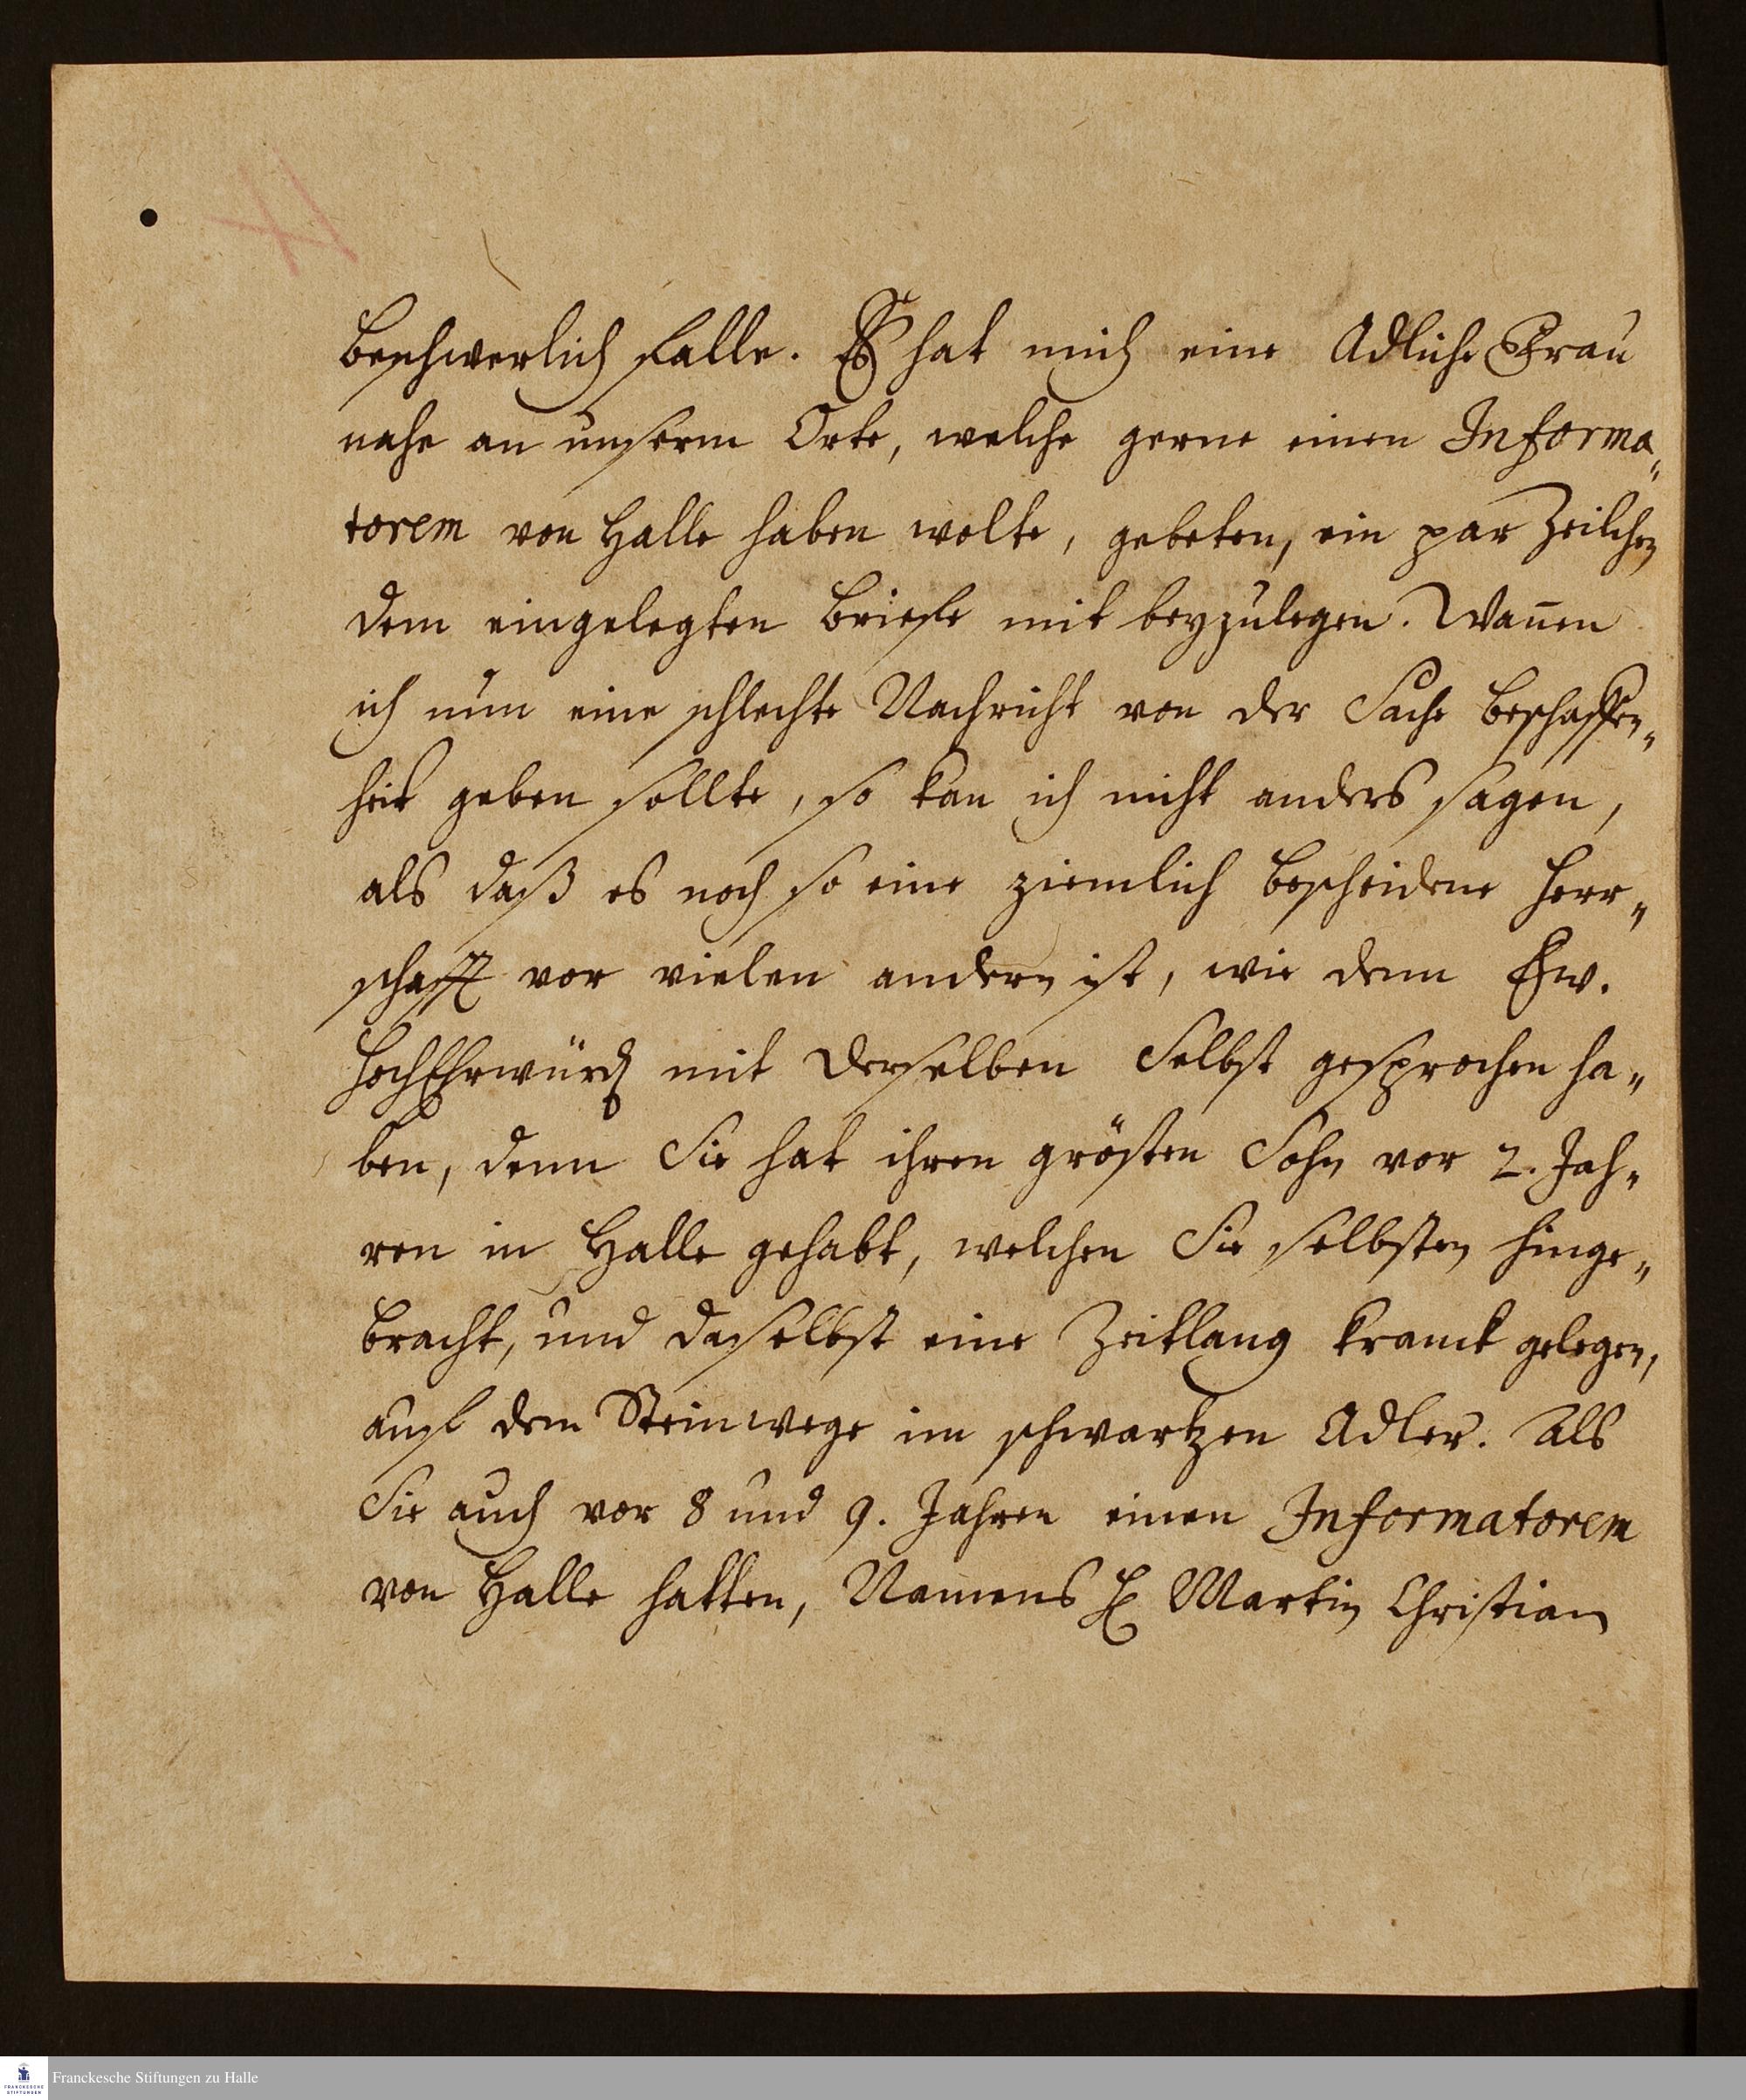 beschwerlich falle. Es hat mich eine Adliche Frau
nahe an unserm Orte, welche gerne einen Informa„
torem von Halle haben wolte, gebeten, ein par Zeilchen
dem eingelegten Briefe mit beyzulegen. Wañen
ich nun eine schlechte Nachricht von der Sache Beschaffen„
heit geben sollte, so kan ich nicht anders sagen,
als daß es noch so eine ziemlich bescheidene Herr„
schafft vor vielen andern ist, wie denn Ehw.
HochEhrwürd mit derselben Selbst gesprochen ha„
ben, denn Sie hat ihren grösten Sohn vor 2. Jah„
ren in Halle gehabt, welchen Sie selbsten hinge„
bracht, und daselbst eine Zeitlang kranck gelegen,
auf dem Steinwege im schwartzen Adler. Als
Sie auch vor 8 und 9. Jahren einen Informatorem
von Halle hatten, Namens H Martin Christian
Franckesche Stiftungen zu Halle
FRANCKESCHE
STIFTUNGEN